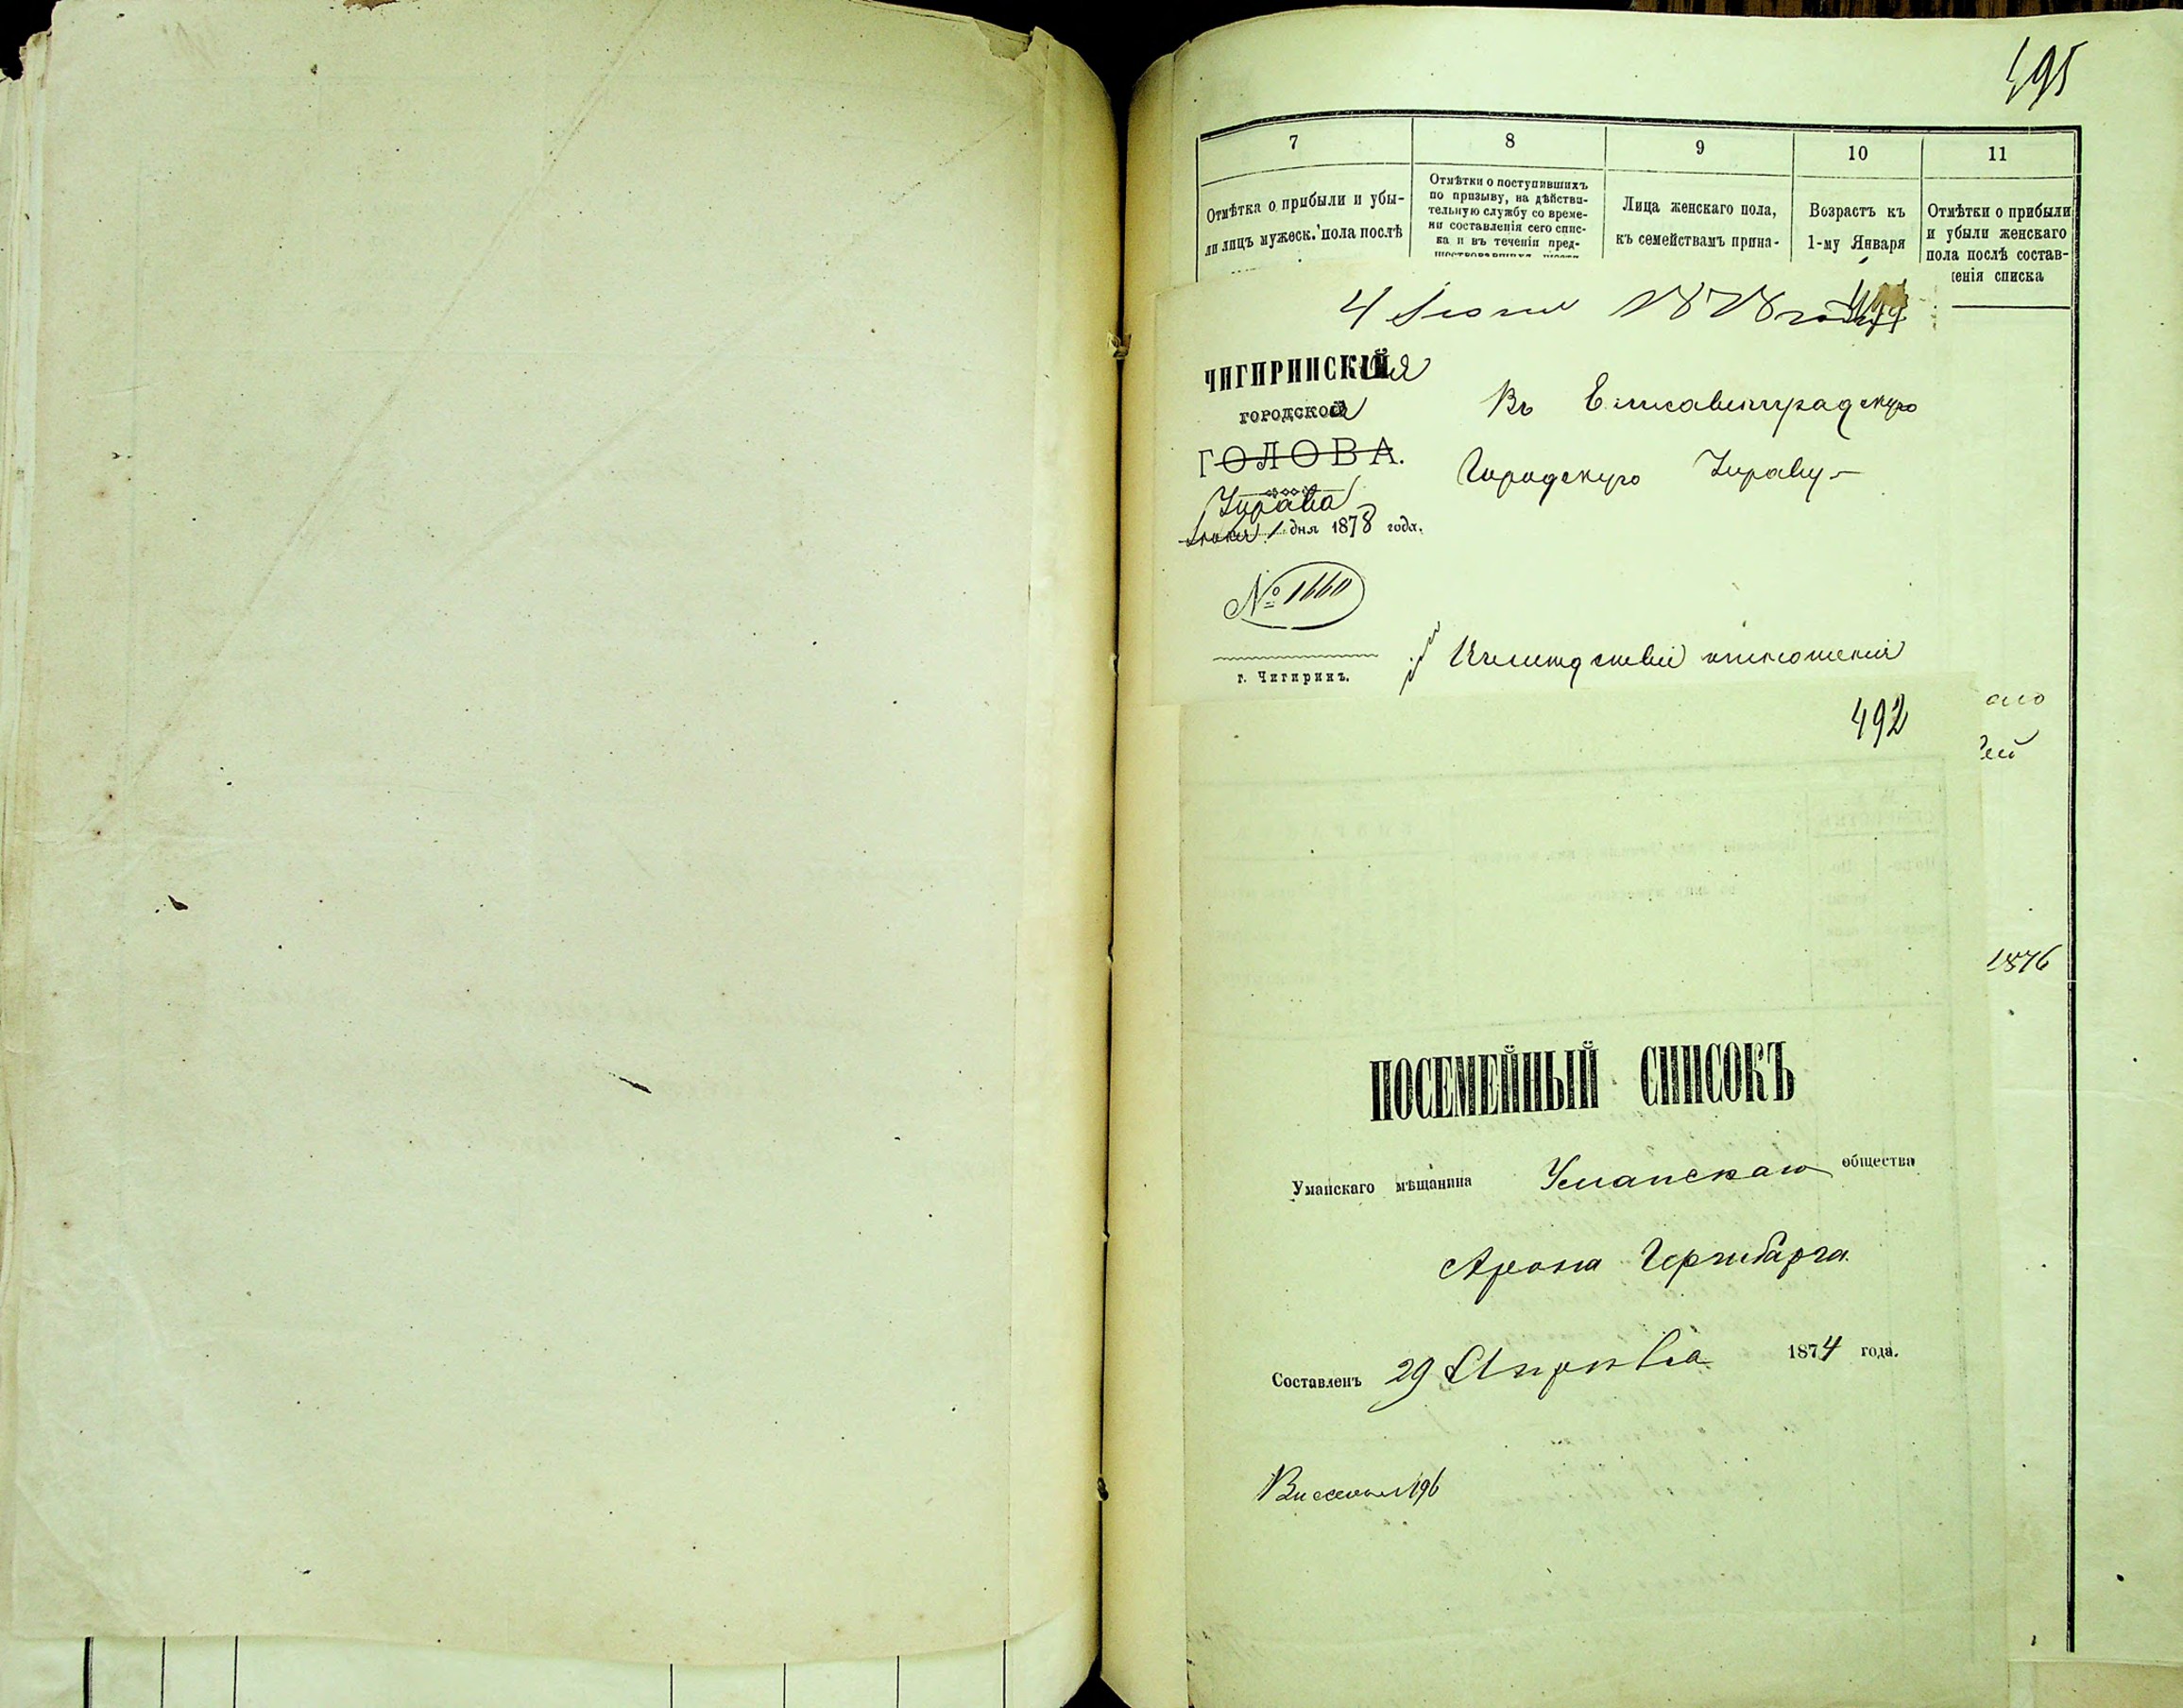 495
7
8
9
10
11
Отмѣтка о прибыли и убы-
ли лицъ мужеск. пола послѣ
Отмѣтки о поступившихъ
по призыву, на дѣйстви-
тельную службу со време-
ни составленія сего спис-
ка и въ теченіи пред-
Лица женскаго пола,
къ семействамъ прина-
Возрастъ къ
1-му Января
Отмѣтки о прибыли
и убыли женскаго
пола послѣ состав-
ленія списка
4 Іюня 1878 года
ЧИГИРИНСКАЯ
ГОРОДСКАЯ
ГОЛОВА.
Управа
Іюня 1 дня 1878 года.
№ 1660
г. Чигиринъ.
Въ Елисаветградскую
Городскую Управу
отношенія
492
аго
1876
ПОСЕМЕЙНЫЙ СПИСОКЪ
Уманскаго мѣщанина Уманскаго общества
Арона
Составленъ 29 1874 года.
196